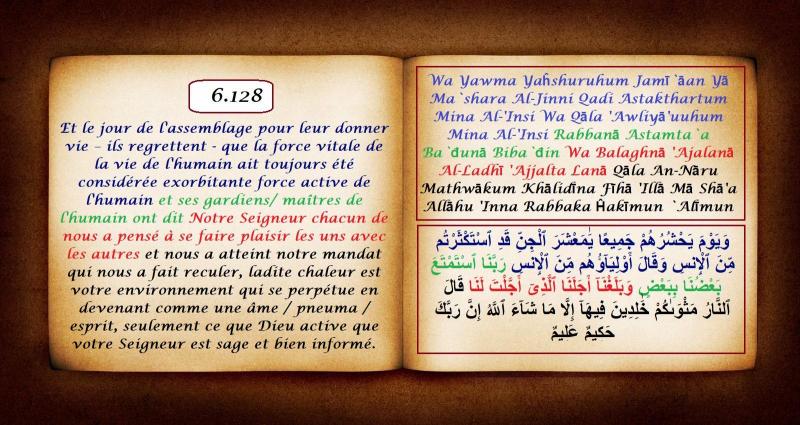 6.128
Et le jour de l'assemblage pour leur donner
vie – ils regrettent - que la force vitale de
la vie de l'humain ait toujours été
considérée exorbitante force active de
l'humain et ses gardiens/ maîtres de
l'humain ont dit Notre Seigneur chacun de
nous a pensé à se faire plaisir les uns avec
les autres et nous a atteint notre mandat
qui nous a fait reculer, ladite chaleur est
votre environnement qui se perpétue en
devenant comme une âme / pneuma /
esprit, seulement ce que Dieu active que
votre Seigneur est sage et bien informé.
Wa Yawma Yaĥshuruhum Jamī`āan Yā
Ma`shara Al-Jinni Qadi Astakthartum
Mina Al-'Insi Wa Qāla 'Awliyā'uuhum
Mina Al-'Insi Rabbanā Astamta`a
Ba`đunā Biba`đin Wa Balaghnā 'Ajalanā
Al-Ladhī 'Ajjalta Lanā Qāla An-Nāru
Mathwākum Khālidīna Fīhā 'Illā Mā Shā'a
Allāhu 'Inna Rabbaka Ĥakīmun `Alīmun
وَيَوْمَ يَحْشُرُهُمْ جَمِيعًا يَٰمَعْشَرَ ٱلْجِنِّ قَدِ ٱسْتَكْثَرْتُم
مِّنَ ٱلْإِنسِ وَقَالَ أَوْلِيَاؤُهُم مِّنَ ٱلْإِنسِ رَبَّنَا ٱسْتَمْتَعَ
بَعْضُنَا بِبَعْضٍ وَبَلَغْنَآ أَجَلَنَا ٱلَّذِىٓ أَجَّلْتَ لَنَا قَالَ
ٱلنَّارُ مَثْوَىٰكُمْ خَٰلِدِينَ فِيهَآ إِلَّا مَا شَآءَ ٱللَّهُ إِنَّ رَبَّكَ
حَكِيمٌ عَلِيمٌ